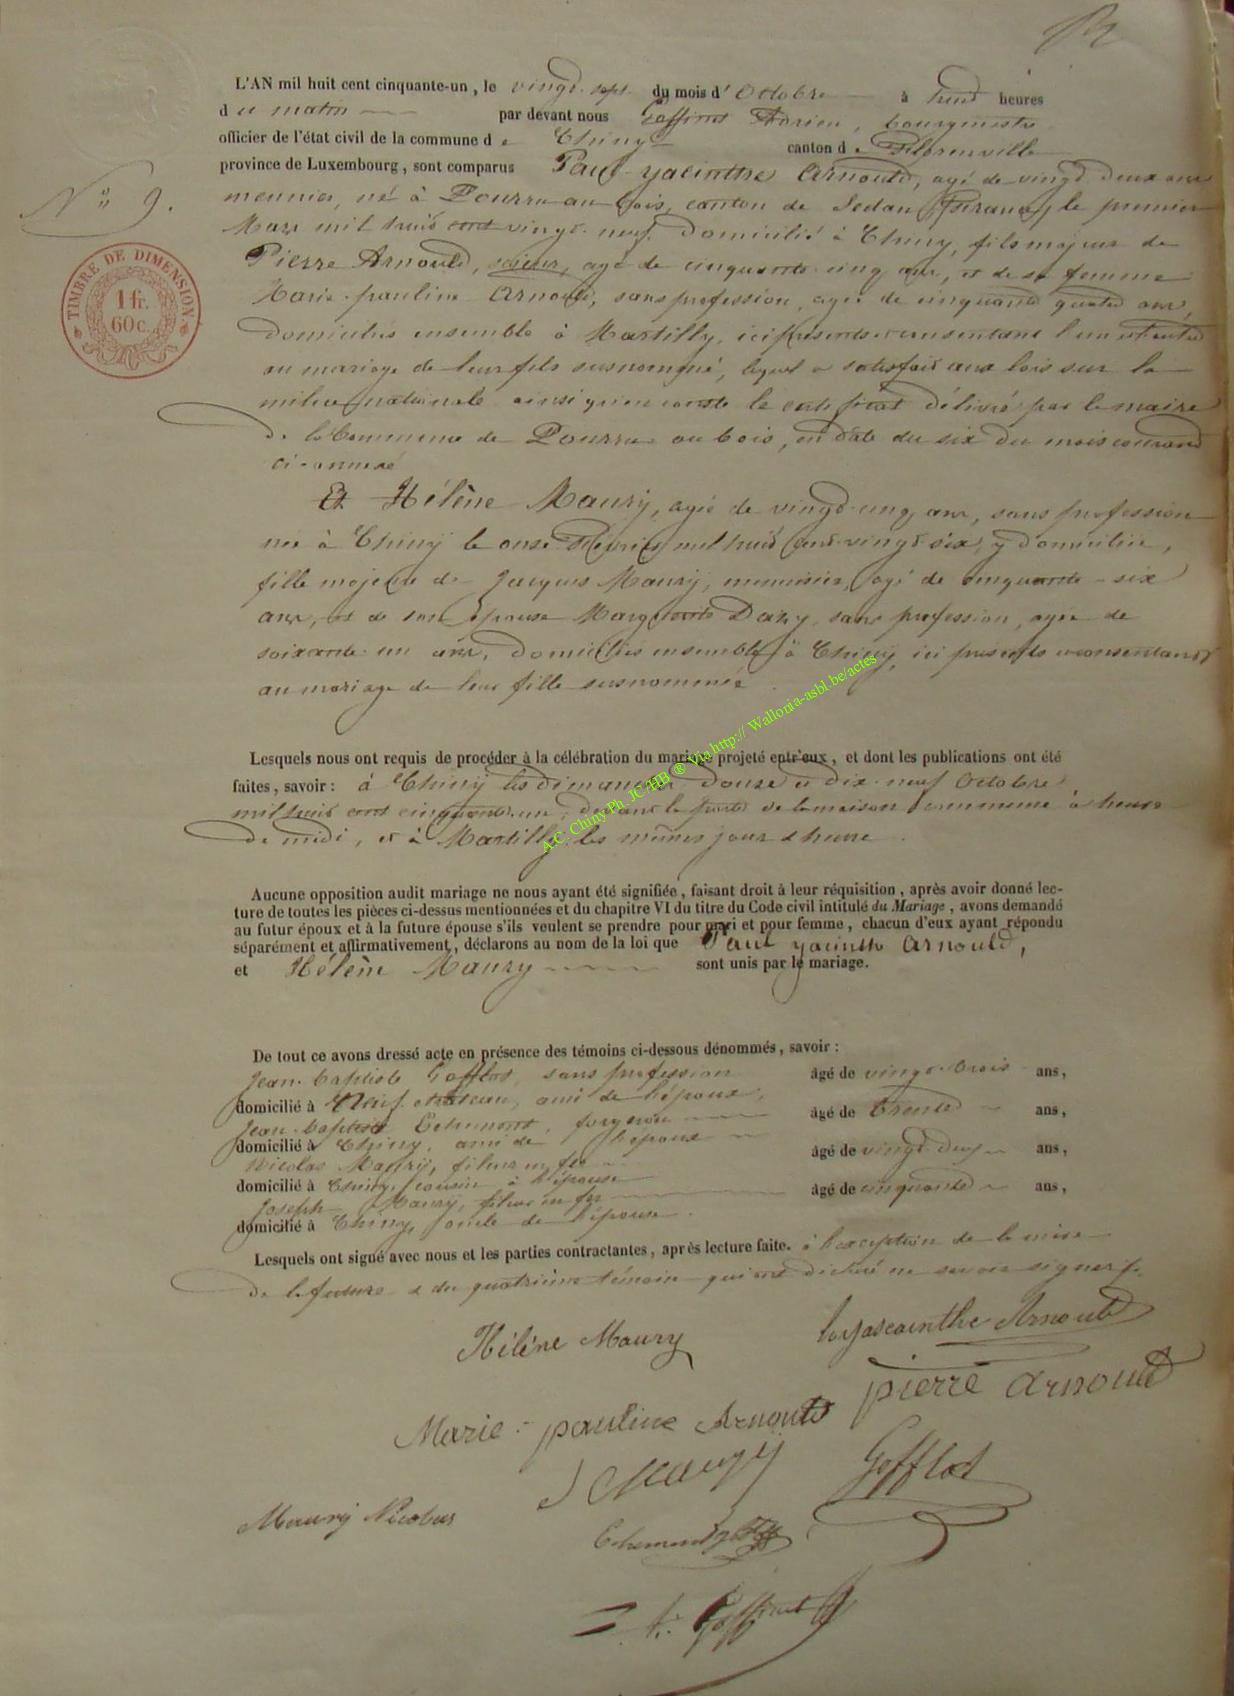 L'AN mil huit cent cinquante-un, le vingt-sept du mois d'Octobre à huit heures
du matin par devant nous Goffinet Adrien, bourgmestre
officier de l'état civil de la commune de Chiny canton de Florenville
province de Luxembourg, sont comparus Paul-yacinthe Arnould, agé de vingt deux ans
N° 9.
meunier, né à Pourru au bois, canton de Sedan (france) le premier
Mars mil huit cent vingt-neuf. Domicilié à Chiny, fils majeur de
TIMBRE DE DIMENSION.
1 fr.
60 c.
Pierre Arnould, scieur, agé de cinquante-cinq ans, et de sa femme
Marie-pauline Arnould, sans profession, agée de cinquante quatre ans,
domiciliés ensemble à Martilly, ici présents et consentant l'un et l'autre
au mariage de leur fils susnommé, lequel a satisfait aux lois sur la
milice nationale ainsi qu'en conste le certificat délivré par le maire
de la Commune de Pourru au bois, en date du six du mois courant
ci-annexé
Et Hélène Maury, agée de vingt-cinq ans, sans profession
née à Chiny le onze Février mil huit cent vingt six, y domiciliée,
fille majeure de Jacques Maury, menuisier, agé de cinquante-six
ans, et de son épouse Marguerite Dazy, sans profession, agée de
soixante-un ans, domiciliés ensemble à Chiny, ici présents et consentant
au mariage de leur fille susnommée.
Lesquels nous ont requis de procéder à la célébration du mariage projeté entr'eux, et dont les publications ont été
faites, savoir: à Chiny les dimanches douze et dix-neuf Octobre
mil huit cent cinquante-un, devant la porte de la maison commune à heure
de midi, et à Martilly les mêmes jour & heure.
A.C. Chiny Ph. JC/HB ® Via http:// Wallonia-asbl.be/actes
Aucune opposition audit mariage ne nous ayant été signifiée, faisant droit à leur réquisition, après avoir donné lec-
ture de toutes les pièces ci-dessus mentionnées et du chapitre VI du titre du Code civil intitulé du Mariage, avons demandé
au futur époux et à la future épouse s'ils veulent se prendre pour mari et pour femme, chacun d'eux ayant répondu
séparément et affirmativement, déclarons au nom de la loi que Paul yacinthe Arnould,
et Hélène Maury sont unis par le mariage.
De tout ce avons dressé acte en présence des témoins ci-dessous dénommés, savoir:
Jean-baptiste Gofflot, sans profession âgé de vingt-trois ans,
domicilié à Neufchateau, ami de l'époux,
Jean-baptiste Echement, forgeron âgé de trente ans,
domicilié à Chiny, ami de l'époux
Nicolas Maury, fileur en fer âgé de vingt-deux ans,
domicilié à Chiny, cousin à l'épouse
Joseph Maury, fileur en fer âgé de cinquante ans,
domicilié à Chiny, oncle de l'épouse.
Lesquels ont signé avec nous et les parties contractantes, après lecture faite. à l'exception de la mère
de la future & du quatrième témoin qui ont déclaré ne savoir signer.
Hélène Maury
Arnould
pierre Arnould
Marie-pauline Arnould
J Maury
Gofflot
Maury Nicolas
Echement
A. Goffinet